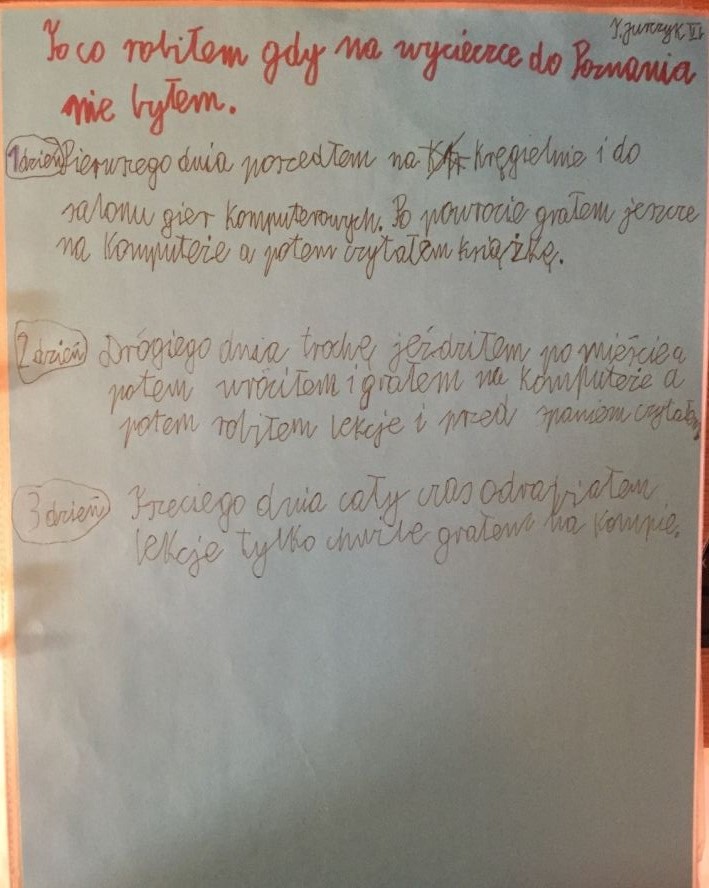 J. Jurczyk VI
To co robiłem gdy na wycieczce do Poznania
nie byłem.
1 dzień Pierwszego dnia poszedłem na Kręgielnie i do
salonu gier Komputerowych. Po powrocie grałem jeszcze
na Komputeże a potem czytałem książkę.
2 dzień Drógiego dnia trochę jeździłem po mieście a
potem wróciłem i grałem na Komputeże a
potem robiłem lekcje i przed spaniem czytałem
3 dzień Trzeciego dnia cały czas odrapiałem
lekcje tylko chwile grałem na kompie.